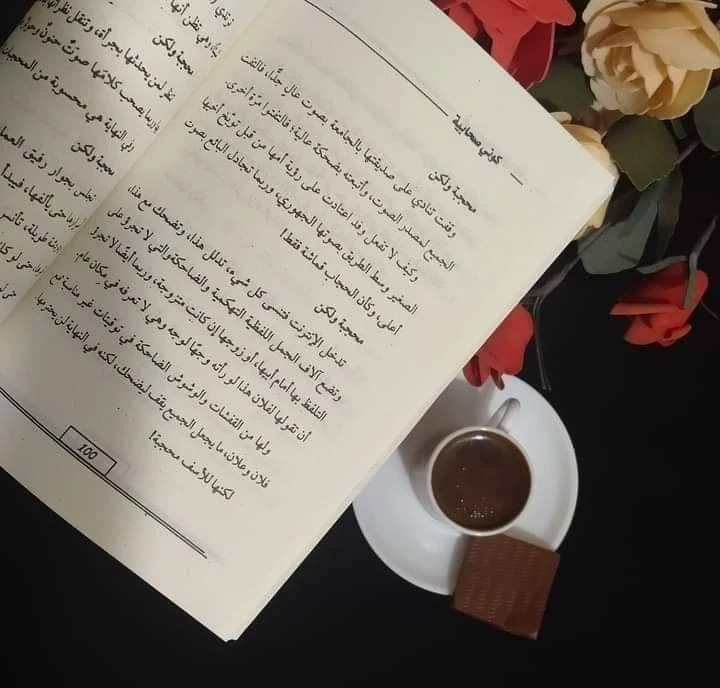 كوني صحابية
محجبة ولكن
وقفت تنادي على صديقتها بالجامعة بصوت عالٍ جدًّا، فالتفت
الجميع لمصدر الصوت، وأتبعته ضحكة عالية؛ فالتفتوا مرة أخرى.
وكيف لا تفعل وقد اعتادت على رؤية أمها من قبل توبِّخ أخيها
الصغير وسط الطريق بصوتها الجهوري، وربما تجادل البائع بصوت
أعلى، وكأن الحجاب قماشة فقط!
محجبة ولكن
تدخل الإنترنت فتنسى كل شيء، تدلل هذا، وتضحك مع هذا،
وتضع آلاف الجمل اللفظية التهكمية والضاحكة والتي لا تجرؤ على
التلفظ بها أمام أبيها، أو زوجها إن كانت متزوجة، وربما أيضًا لا تجرؤ
أن تقولها لفلان هذا لو رأته وجهًا لوجه وهي لا تعرفه في مكان عام.
ولها من القفشات والوشوش الضاحكة في توقيتات غير مناسبة مع
فلان وعلان، ما يجعل الجميع يقف ليضحك، لكنه في النهاية لن يحترمها.
لكنها للأسف محجبة!
100
وهي تظن أنها
محجبة ولكن
لمن يحدثها بجرأة، وتنقل
يصحب كلامها صوتٌ حنونٌ
في النهاية هي محسوبة من المحجبات
محجبة ولكن
تجلس بجوار رفيق